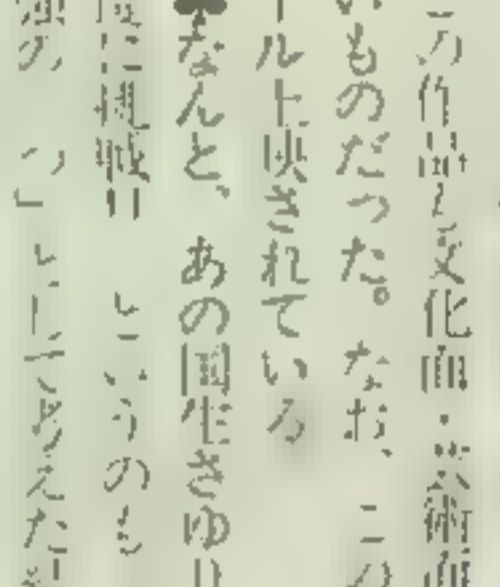 の作品を文化面・芸術面
いものだった。なお、この
ール上映されている
♠なんと、あの国生さゆり
度に挑戦!! というのも
の つ」としてあえた